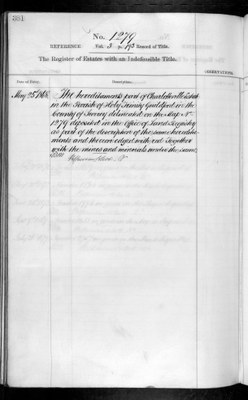 381
No. 1279
REFERENCE Vol. 3 p. 193 Record of Title.
The Register of Estates with an Indefeasible Title.
OBSERVATIONS.
Date of Entry. Description.
May 25 1868 The hereditaments part of Charlotteville Estate
in the Parish of Holy Trinity Guildford in the
County of Surrey delineated on the Map No.
1279 deposited in the Office of Land Registry
as part of the description of the same heredita-
ments and thereon edged with red Together
with the mines and minerals under the same